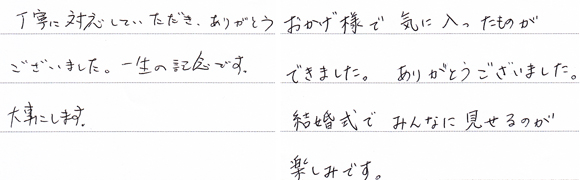 丁寧に対応していただき、ありがとう
ございました。一生の記念です。
大事にします。
おかげ様で 気に入ったものが
できました。 ありがとうございました。
結婚式で みんなに 見せるのが
楽しみです。